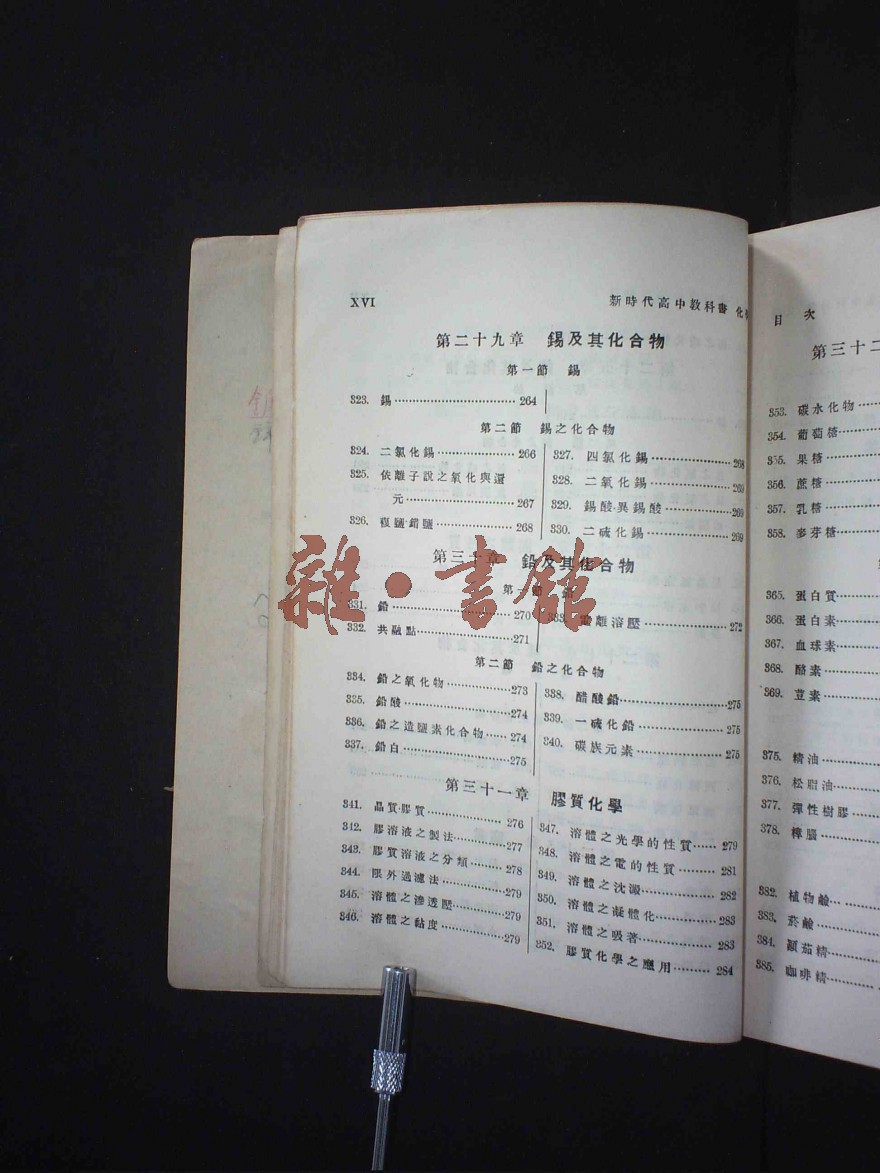 XVI
新時代高中教科書 化
第二十九章 錫及其化合物
第一節 錫
323. 錫 264
第二節 錫之化合物
324. 二氯化錫 266
325. 依離子說之氧化與還
元 267
326. 複鹽·錯鹽 268
327. 四氯化錫 268
328. 二氧化錫 269
329. 錫酸·異錫酸 269
330. 二硫化錫 269
第三十章 鉛及其化合物
第一節
331. 鉛 270
332. 共融點 271
333. 電離溶壓 272
第二節 鉛之化合物
334. 鉛之氧化物 273
335. 鉛酸 274
336. 鉛之造鹽素化合物 274
337. 鉛白 275
338. 醋酸鉛 275
339. 一硫化鉛 275
340. 碳族元素 275
第三十一章 膠質化學
341. 晶質·膠質 276
342. 膠溶液之製法 277
343. 膠質溶液之分類 278
344. 限外過濾法 279
345. 溶體之滲透壓 279
346. 溶體之黏度 279
347. 溶體之光學的性質 279
348. 溶體之電的性質 281
349. 溶體之沈澱 282
350. 溶體之凝體化 283
351. 溶體之吸著 283
352. 膠質化學之應用 284
雜·書館
目次
第三十二
353. 碳水化物
354. 葡萄糖
355. 果糖
356. 蔗糖
357. 乳糖
358. 麥芽糖
365. 蛋白質
366. 蛋白素
367. 血球素
368. 酪素
369. 荳素
375. 精油
376. 松脂油
377. 彈性樹膠
378. 樟腦
382. 植物鹼
383. 菸鹼
384. 顛茄精
385. 咖啡精